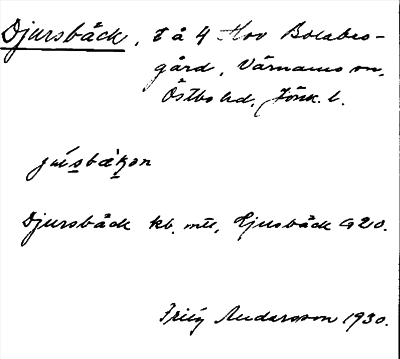 Djursbäck, t å 4 Hov Bolabes-
gård, Värnamo sn,
Östbo hd, Jönk. l.
jusbäkon
Djursbäck kb. mtl, Ejusbäck G20.
Fritz Andersson 1930.